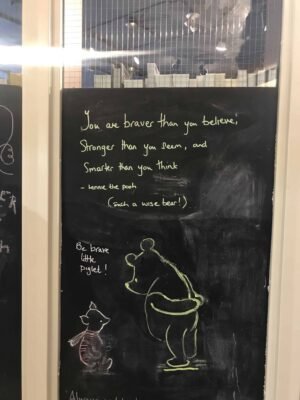 You are braver than you believe,
Stronger than you seem, and
Smarter than you think
- Winnie the pooh
(such a wise bear!)
Be brave
little
piglet!
"Always